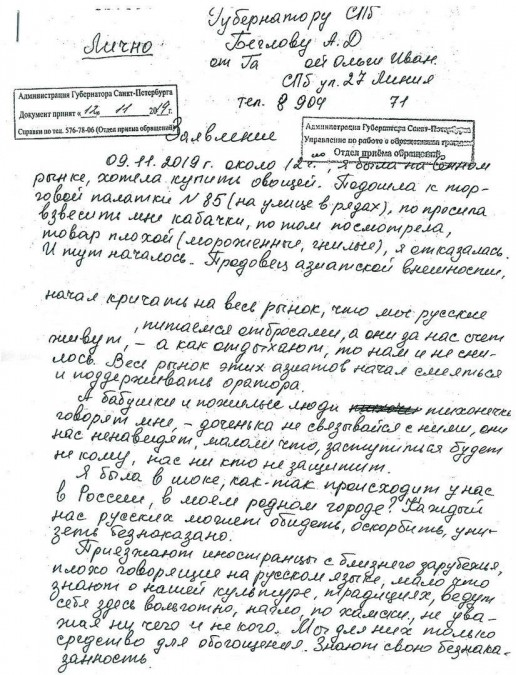 Губернатору СПб
Беглову А.Д
Лично
от Га    ой Ольги Иван.
СПб ул. 27 Линия
тел. 8 904    71
Администрация Губернатора Санкт-Петербурга
Документ принят « 12 » 11 2019 г.
Справки по тел. 576-78-06 (Отдел приёма обращений)
Администрация Губернатора Санкт-Петербурга
Управление по работе с обращениями граждан
Отдел приёма обращений
Заявление
09.11.2019г. около 12 , я была на Сенном
рынке, хотела купить овощей. Подошла к тор-
говой палатки N 85 (на улице в рядах), по просила
взвесить мне кабачки, по том посмотрела,
товар плохой (мороженные, гнилые), я отказалась.
И тут началось. Продовец азиатской внешности,
начал кричать на весь рынок, что мы русские
, питаемся отбросами, а они за нас счет
живут, – а как отдыхают, то нам и не сни-
лось. Весь рынок этих азиатов начал смеяться
и поддерживать оратора.
А бабушки и пожилые люди тихонечко
говорят мне, – доченька не связывайся с ними, они
нас ненавидят, мало ли что, заступиться будет
не кому, нас ни кто не защитит.
Я была в шоке, как-так происходит у нас
в России, в моем родном городе? Каждый
нас русских может обидеть, оскорбить, уни-
зить безнаказано.
Приезжают иностранцы с близнего зарубежия,
плохо говорящие на русском языке, мало что
знают о нашей культуре, традициях, ведут
себя здесь вольготно, нагло, по хамски, не ува-
жая ни чего и не кого. Мы для них только
средство для обогощения. Знают свою безнака-
занность.